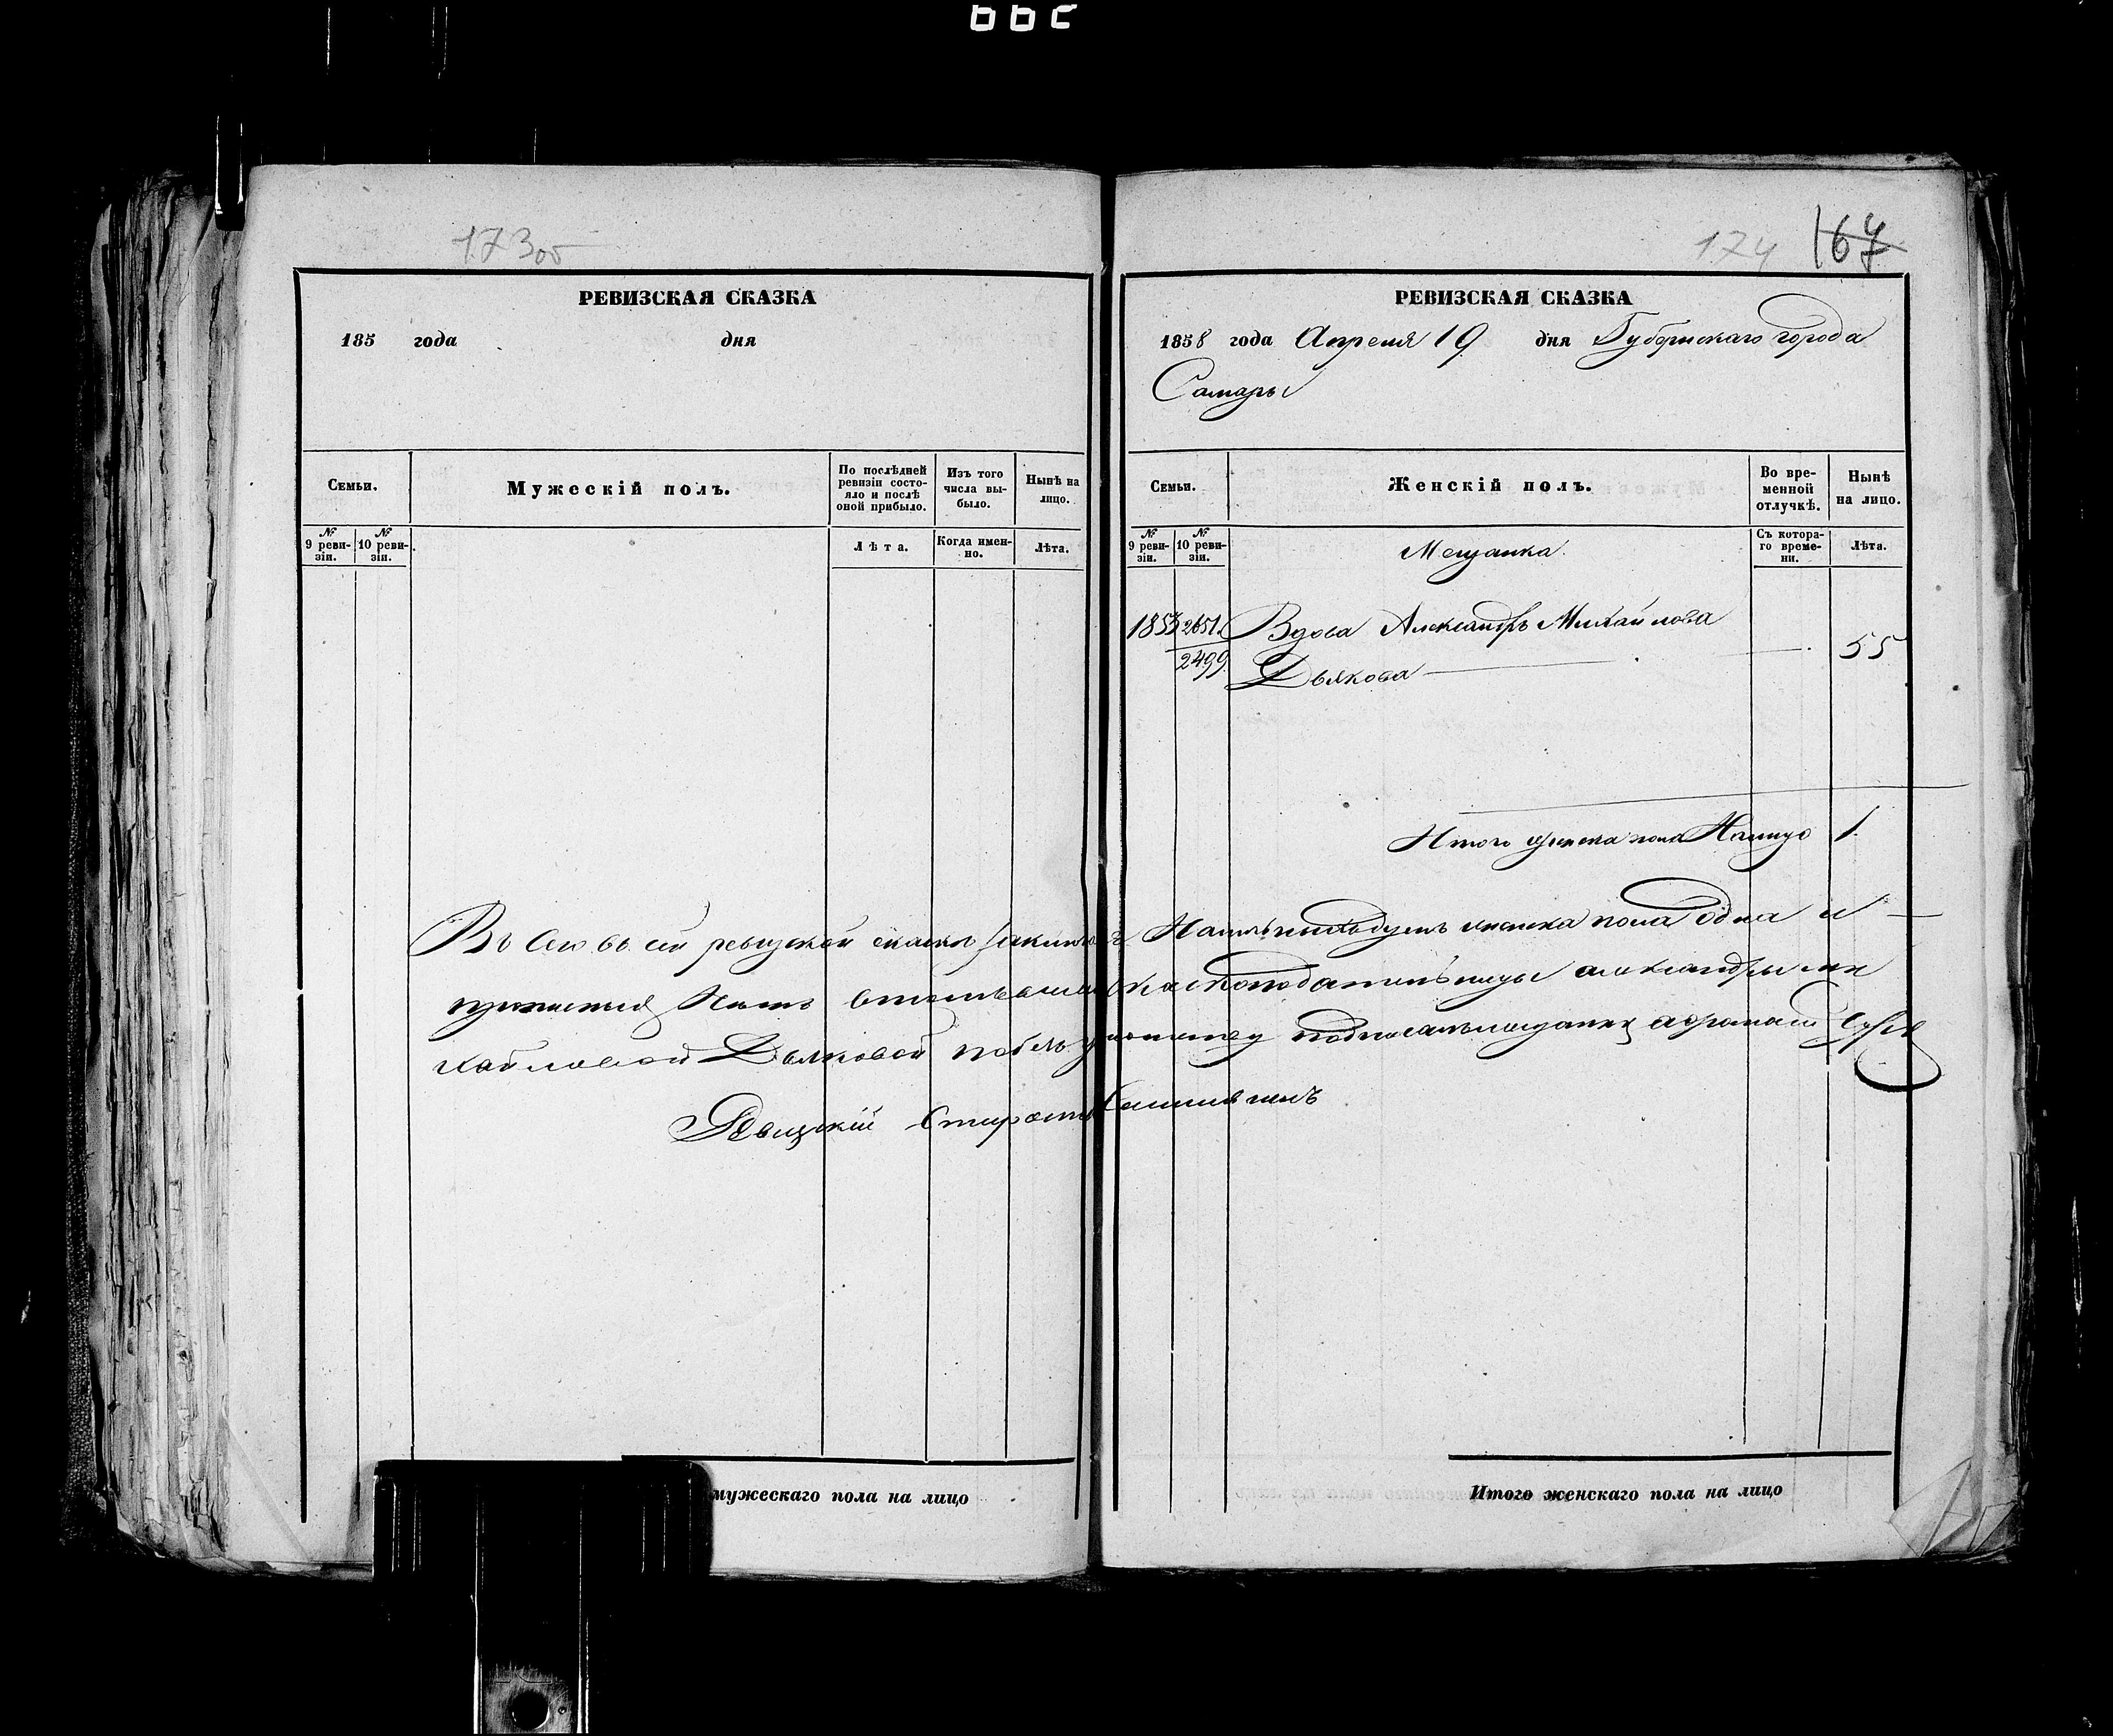 173об
РЕВИЗСКАЯ СКАЗКА
185 года дня
Семьи.
Мужескій полъ.
По послѣдней ревизіи состо-
яло и послѣ оной прибыло.
Изъ того числа вы-
было.
Нынѣ на лицо.
№ 9 реви-
зіи.
№ 10 реви-
зіи.
Лѣта.
Когда имен-
но.
Лѣта.
мужескаго пола на лицо
174 167
РЕВИЗСКАЯ СКАЗКА
1858 года Апреля 19 дня Губернскаго города
Самары
Семьи.
Женскій полъ.
Во вре-
менной
отлучкѣ.
Нынѣ
на лицо.
№ 9 реви-
зіи.
№ 10 реви-
зіи.
Мещанка.
Съ котора-
го време-
ни.
Лѣта.
1853 2651. Вдова Александръ Михайлова
2499 Дьякова 55
Итого женска пола Налицо 1.
Въ Сей ревизской скаски душъ женска пола одна и
Александры Ми
хайловой Дьяковой подписалъ мещанинъ
Ревизкій Староста
Итого женскаго пола на лицо